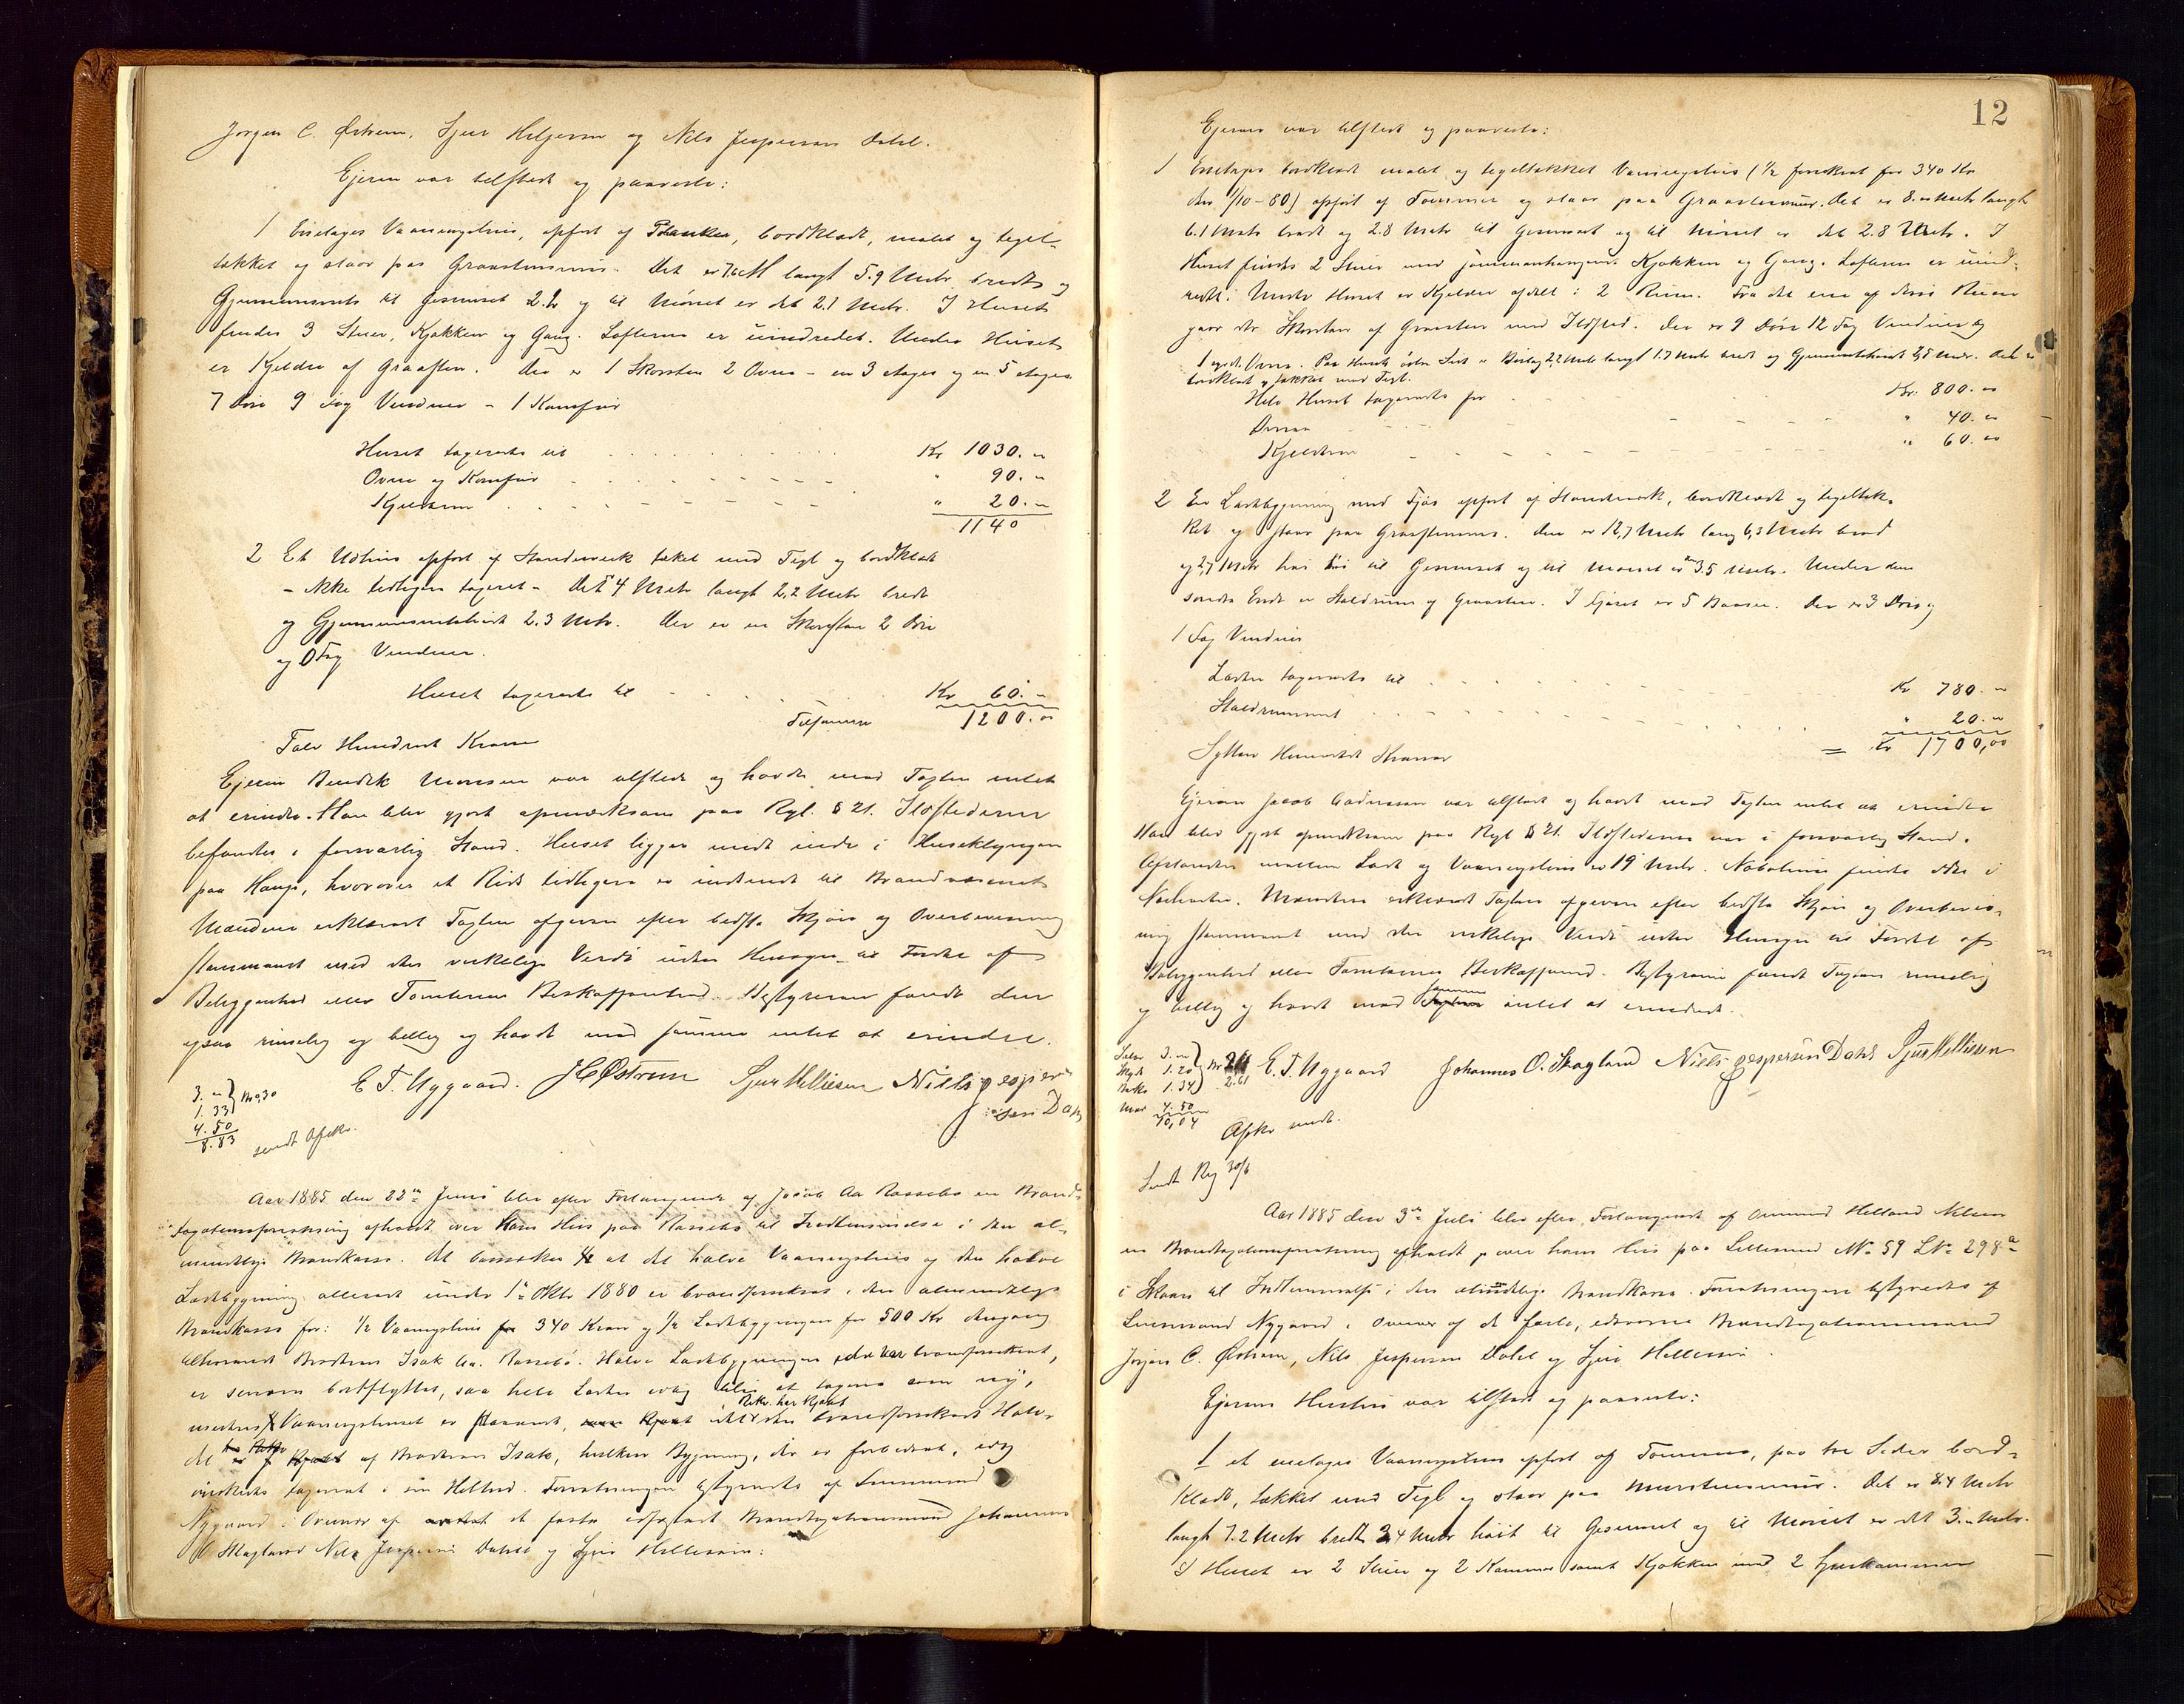 Jørgen C. Østrem, Sjur Heljesen og Nils Jespersen Dahl.
Ejeren var tilstede og paaviste:
1 Enetages Vaaningshus, opført af Planker, bordklædt, malet og tegl-
tækket og staar paa Graastensmur. Det er langt 5.9 Metr bredt og
til Gesimset og til Mønet er det 2.1 Metr. I Huset
findes 3 Stuer, Kjøkken og Gang. Lofterne er uindredet. Under Huset
er Kjelder af Graasten. Der er 1 Skorsten 2 Ovne - en 3 etages og en 5 etages
7 Døre 9 Fag Vinduer - 1 Komfur
Huset taxeredes til Kr 1030. "
Ovne og Komfur " 90. "
Kjelderen " 20. "
1140
2 Et Udhus opført af Standerverk tækket med Tegl og bordklædt
- ikke tidligere taxeret - Det er 4 Metr langt 2,2 Metr bredt
og Gjennemsnitshøide 2.3 Metr. Der er en Skorsten 2 Døre
og 0 Fag Vinduer.
Huset taxeredes til Kr 60. "
Tilsammen 1200. 00
Tolv Hundrede Kroner
Ejeren Bendik Monsen var tilstede og havde mod Taxten intet
at erindre. Han blev gjort opmærksom paa Rgl. § 21. Ildstederne
befandtes i forsvarlig Stand. Huset ligger midt inde i Huseklyngen
paa Hauge, hvorover et Rids tidligere er indsendt til Brandvæsenet
Mændene erklærede Taxten afgiven efter bedste Skjøn og Overbevisning
stemmende med den virkelige Værdi uden Hensyn til Fordel af
Beliggenhed eller Tomternes Beskaffenhed. Bestyreren fandt den
ogsaa rimelig og billig og havde mod samme intet at erindre.
E. T. Nygaard. J C Østrem Sjur Hellesen Nills Jesper
sen Dahl
3. "
1. 33
4. 50
8. 83
sendt Afskr.
Aar 1885 den 22de Juni blev efter Forlangende af Jakob Aa Rossebø en Brand-
taxationsforretning afholdt over hans Hus paa Rossebø til Indlemmelse i den al-
mindelige Brandkasse. Det bemærkes at det halve Vaaningshus og den halve
Ladebygning allerede under 1ste Oktbr 1880 er brandforsikret i den almindelige
Brandkasse for: 1/2 Vaaningshus for 340 Kroner og 1/2 Ladebygningen for 500 Kr dengang
tilhørende Broderen Isak Aa. Rossebø. Halve Ladebygningen, der var brandforsikret,
er senere bortflyttet, saa hele Laden idag bliver at taxere som ny,
medens Vaaningshuset er staaende, Rekv. har Kjøbt den brandforsikrede Halv-
del af Broderen Isak, hvilken Bygning, der er forbedret, idag
ønskedes taxeret i sin Helhed. Forretningen bestyredes af Lensmand
Nygaard i Overvær af de faste edfæstede Brandtaxationsmænd Johannes
O Skagland Nils Jespersen Dahl og Sjur Hellesen:
12
Ejeren var tilstede og paaviste:
1 Enetages bordklædt malet og tegltækket Vaaningshus (1/2 forsikret for 340 Kr
den 1/10-80) opført af Tømmer og staar paa Graastensmur. Det er 8. Metr langt
6.1 Metr bredt og 2.8 Metr til Gesimset og til Mønet er det 2.8 Metr. I
Huset findes 2 Stuer med Kjøkken og Gang. Lofterne er uind-
redt. Under Huset er Kjelder afdelt i 2 Rum. Fra det ene af disse Rum
gaar der Skorsten af Graasten med Ildsted. Der er 9 Døre 12 Fag Vinduer og
1 Ovn. Paa Husets østre Side er Bislag 2,2 Metr langt 1.7 Metr bredt og Gjennemsnitshøide 2,5 Metr. det er
bordklædt og tækket med Tegl.
Hele Huset taxeredes for Kr. 800. 00
Ovnen " 40. 00
Kjelderen " 60. 00
2 En Ladebygning med Fjøs opført af Standerverk, bordklædt og tegltæk-
ket og staar paa Graastensmur. Den er 12,7 Metr lang 6,3 Metr bred
og 2,7 Metr høi til Gesimset og til Mønet er den 3.5 Metr. Under den
søndre Ende er Staldrum af Graasten. I Fjøset er 5 Baase. Der er 3 Døre og
1 Fag Vinduer
Laden taxeredes til Kr 780. "
Staldrummet " 20. "
Sytten Hundrede Kroner = Kr 1700,00
Ejeren Jacob Aadnesen var tilstede og havde mod Taxten intet at erindre
Han blev gjort opmærksom paa Rgl § 21. Ildstederne var i forsvarlig Stand.
Afstanden mellem Lade og Vaaningshus er 19 Metr. Nabohuse findes ikke i
Nærheden. Mændene erklærede Taxten afgiven efter bedste Skjøn og Overbevis-
ning stemmende med den virkelige Værdi uden Hensyn til Fordel af
Beliggenhed eller Tomternes Beskaffenhed. Bestyreren fandt Taxten rimelig
og billig og havde mod samme intet at erindre.
3. "
1. 20
1. 34
2.61
4. 50
10,04
E. T. Nygaard Johannes O. Skagland Niels Jespersen Dahl Sjur Hellesen
Afskr sendt.
Sendt Rg 30/6
Aar 1885 den 3de Juli blev efter Forlangende af Ommund Helland Nilsen
en Brandtaxationsforretning afholdt over hans Hus paa Lillesund No 59 LNo 298a
i Skaare til Indlemmelse i den almindelige Brandkasse. Forretningen bestyredes af
Lensmand Nygaard i Overvær af de faste, edsvorne Brandtaxationsmænd
Jørgen C. Østrem, Nils Jespersen Dahl og Sjur Hellesen.
Ejerens Hustru var tilstede og paaviste:
1 et enetages Vaaningshus opført af Tømmer, paa tre Sider bord-
klædt, tækket med Tegl og staar paa Murstensmur. Det er 8.4 Metr
langt 7.2 Metr bredt 3.4 Metr høit til Gesimset og til Mønet er det 3. " Metr.
I Huset er 2 Stuer og 2 Kammer samt Kjøkken med 2 Spiskammer